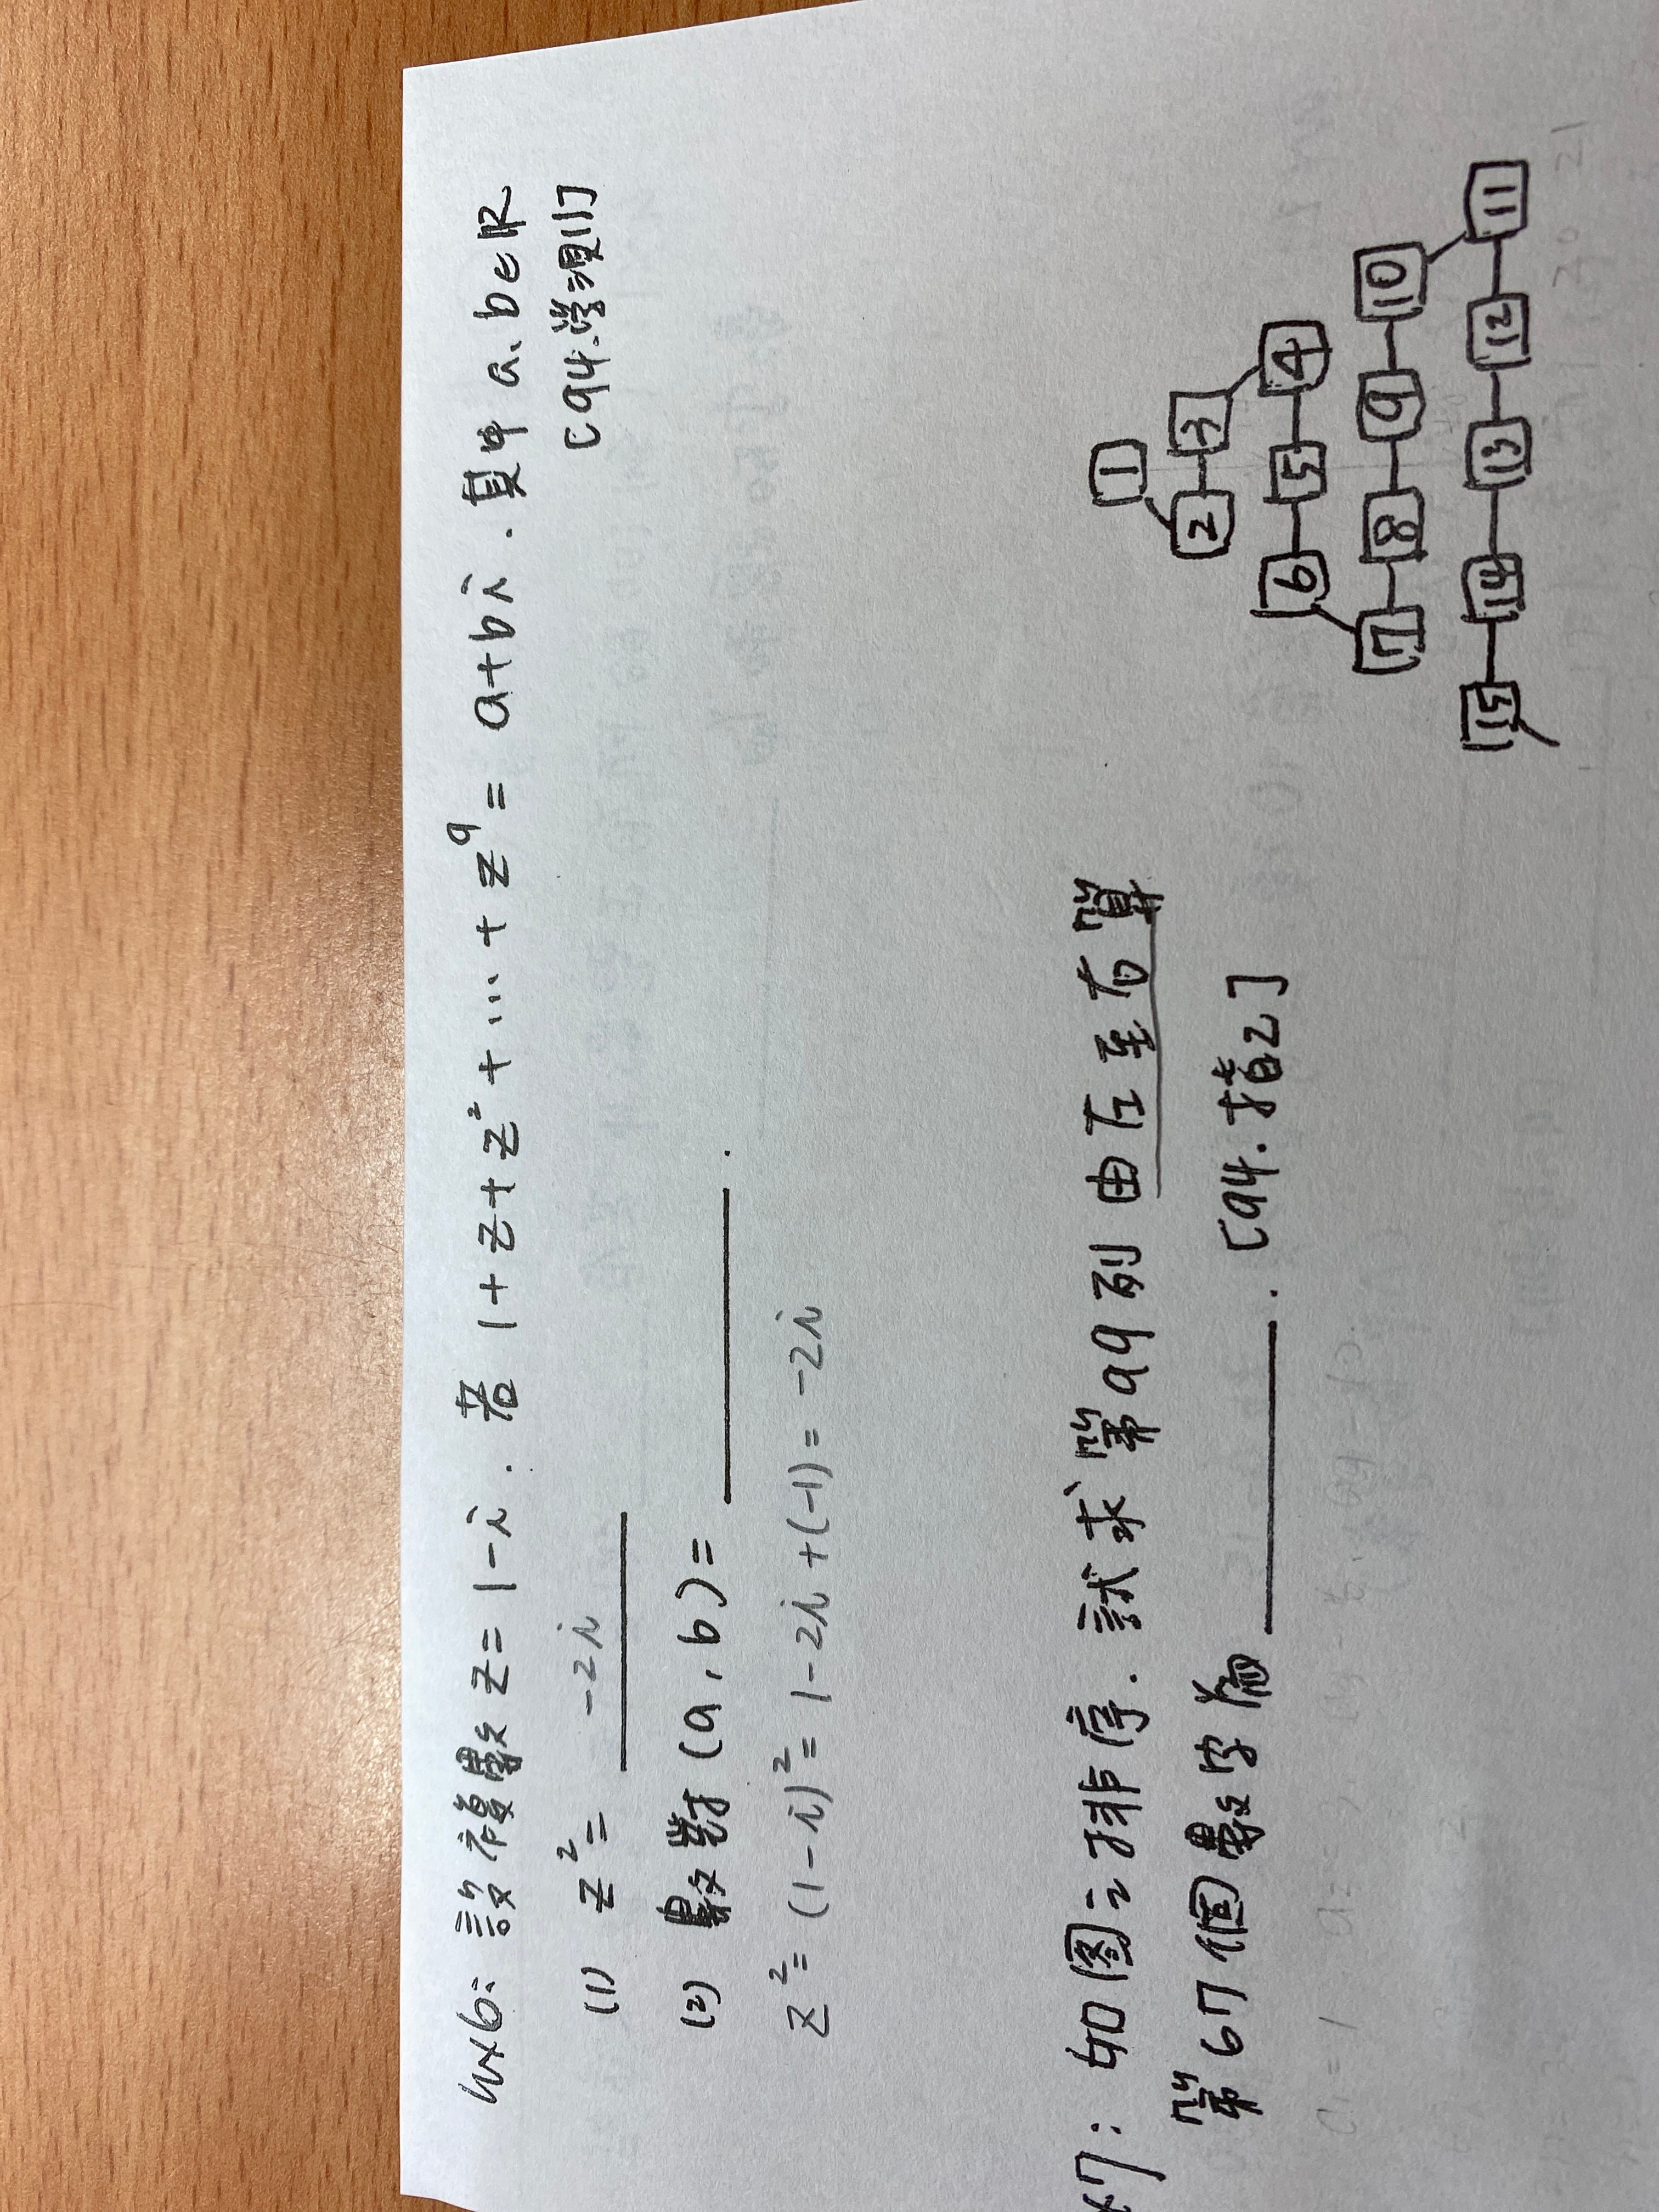 ex6: 設複數 z = 1-i. 若 1+z+z²+...+z⁹ = a+bi. 其中 a、b∈ℝ
[94.學測1]
(1) z² = -2i
(2) 數對 (a, b) = ______.
z² = (1-i)² = 1-2i+(-1) = -2i
x7: 如图之排序. 試求第99列由左至右算
第67個數字為______. [94.指乙]
1
2 3
6 5 4
7 8 9 10
15 14 13 12 11